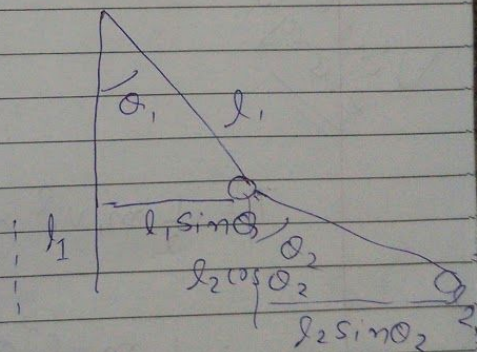 θ₁
l₁
l₁ sinθ
l₁
θ₂
l₂ cosθ₂
2
l₂ sinθ₂